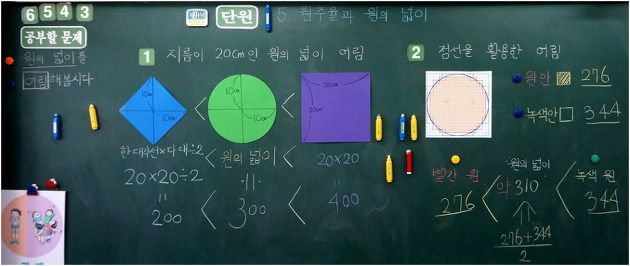 6 5 4 3
단원 5. 원주율과 원의 넓이
공부할 문제
원의 넓이를
어림해봅시다
1 지름이 20cm인 원의 넓이 어림
10cm
10cm
<
10cm
10cm
<
20cm
20cm
한 대각선×다 대÷2 < 원의 넓이 < 20×20
20×20÷2
=
200 < 300 < 400
2 점선을 활용한 어림
원안 276
녹색안 344
빨간 원 < 원의 넓이 < 녹색 원
276 약 310 344
276+344
2